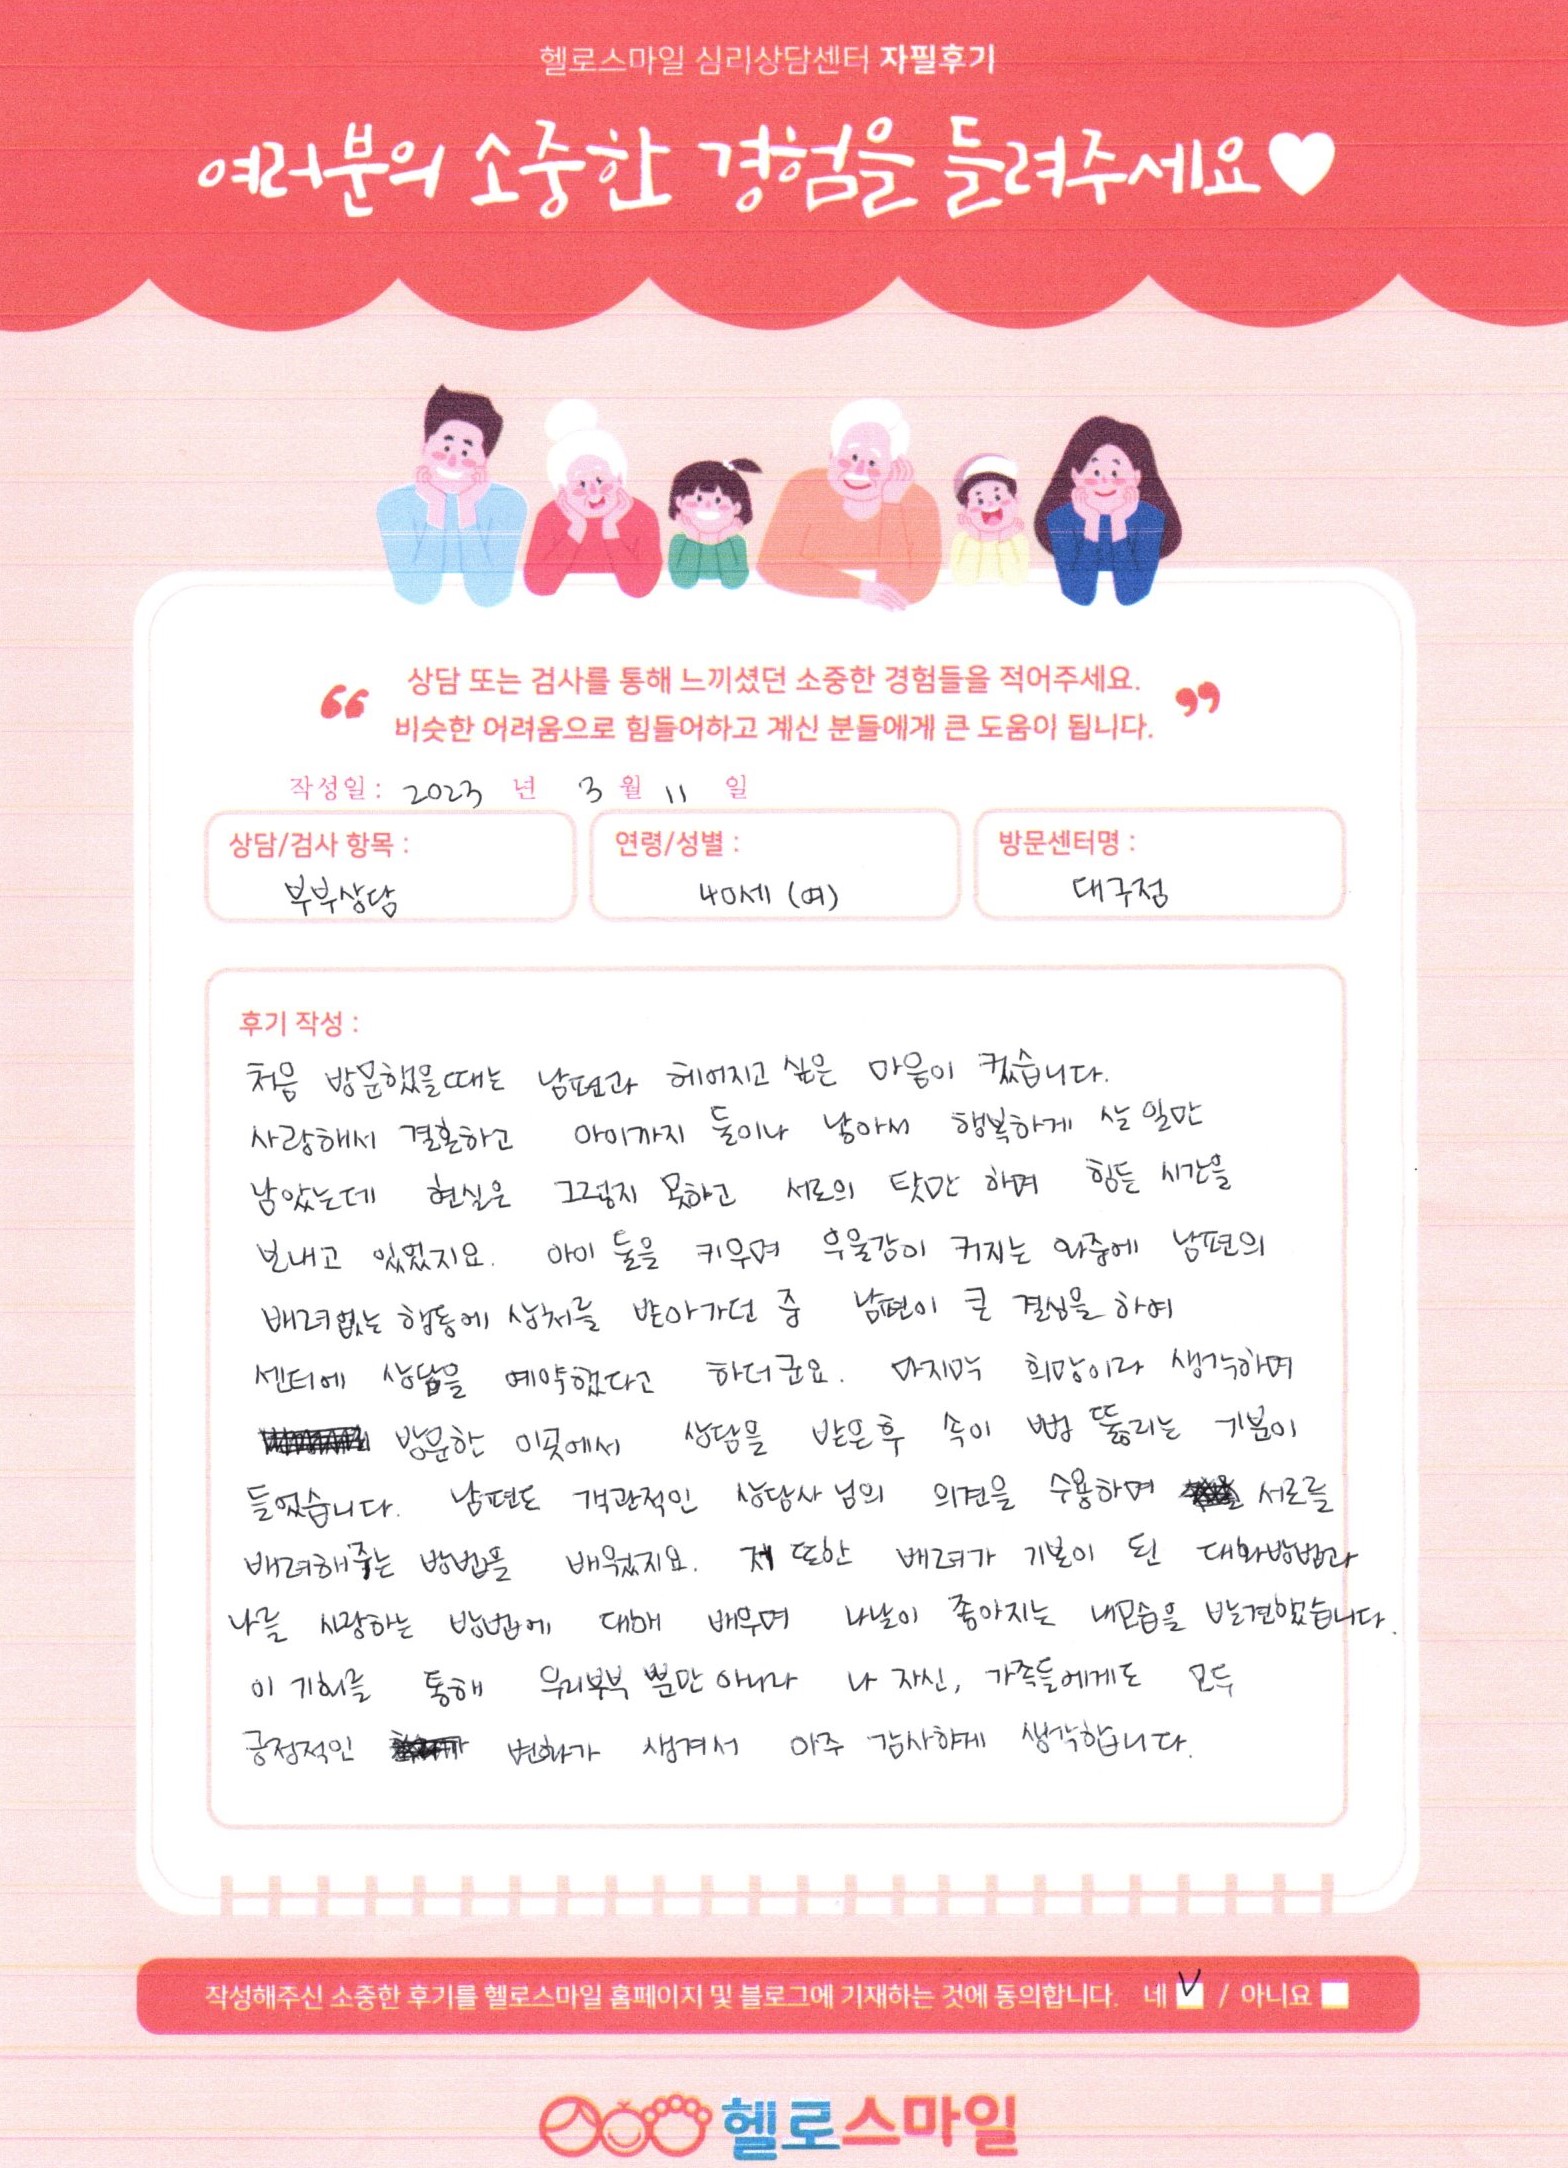 헬로스마일 심리상담센터 자필후기
여러분의 소중한 경험을 들려주세요♥
“ 상담 또는 검사를 통해 느끼셨던 소중한 경험들을 적어주세요.
비슷한 어려움으로 힘들어하고 계신 분들에게 큰 도움이 됩니다. ”
작성일 : 2023 년 3 월 11 일
상담/검사 항목 : 연령/성별 : 방문센터명 :
부부상담 40세 (여) 대구점
후기 작성 :
처음 방문했을때는 남편과 헤어지고 싶은 마음이 컸습니다.
사랑해서 결혼하고 아이까지 둘이나 낳아서 행복하게 살 일만
남았는데 현실은 그렇지 못하고 서로의 탓만 하며 힘든 시간을
보내고 있었지요. 아이 둘을 키우며 우울감이 커지는 와중에 남편의
배려없는 행동에 상처를 받아가던 중 남편이 큰 결심을 하여
센터에 상담을 예약했다고 하더군요. 마지막 희망이라 생각하며
방문한 이곳에서 상담을 받은후 속이 뻥 뚫리는 기분이
들었습니다. 남편도 객관적인 상담사님의 의견을 수용하며 서로를
배려해주는 방법을 배웠지요. 저 또한 배려가 기본이 된 대화방법과
나를 사랑하는 방법에 대해 배우며 나날이 좋아지는 내모습을 발견했습니다.
이 기회를 통해 우리부부 뿐만 아니라 나 자신, 가족들에게도 모두
긍정적인 변화가 생겨서 아주 감사하게 생각합니다.
작성해주신 소중한 후기를 헬로스마일 홈페이지 및 블로그에 기재하는 것에 동의합니다. 네 V / 아니요
헬로스마일